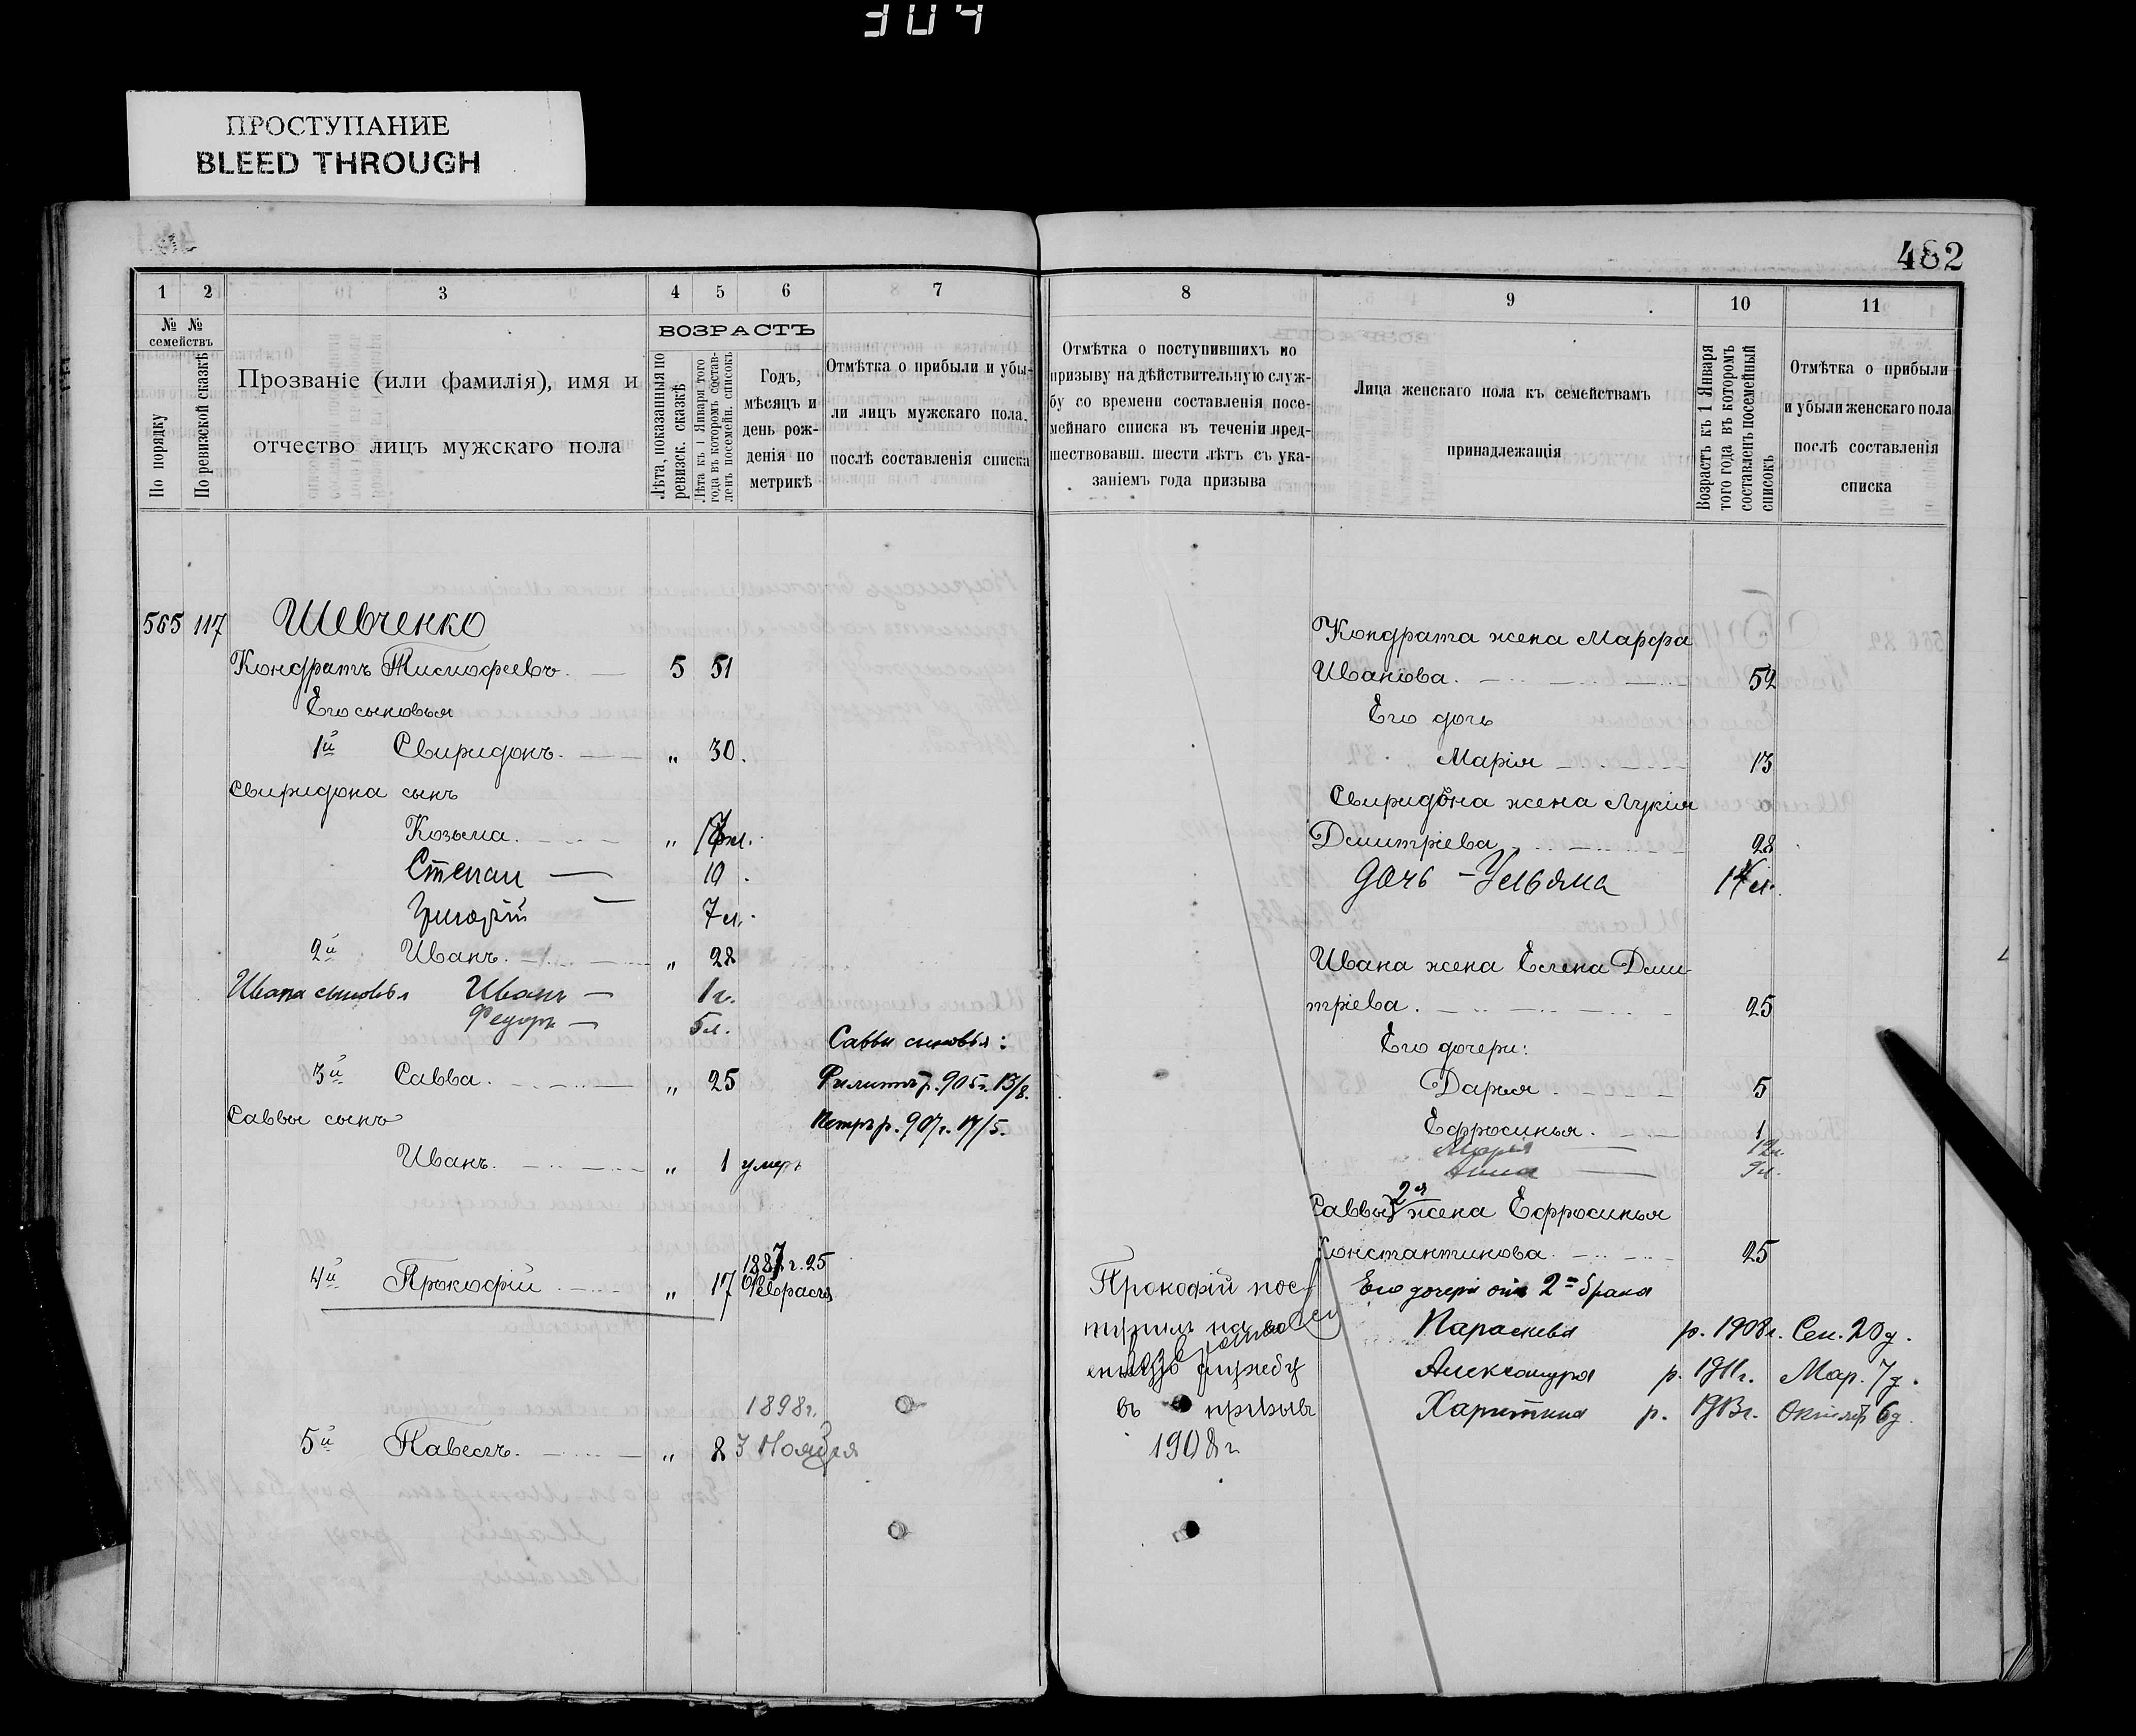 304
ПРОСТУПАНИЕ
BLEED THROUGH
482
1 2 3 4 5 6 7
№ № семействъ
По порядку
По ревизской сказкѣ
Прозваніе (или фамилія), имя и
отчество лицъ мужскаго пола
ВОЗРАСТЪ
Лѣта, показанныя по
ревизск. сказкѣ
Лѣта къ 1 Января того
года въ которомъ состав-
ленъ посемейн. списокъ
Годъ,
мѣсяцъ и
день рож-
денія по
метрикѣ
Отмѣтка о прибыли и убы-
ли лицъ мужскаго пола,
послѣ составленія списка
565 117 Шевченко
Кондратъ Тимофеевъ. 5 51
Его сыновья
1й Свиридонъ. " 30.
Свиридона сынъ
Козьма. "
Степан 10
Григорій 7 л.
2й Иванъ. " 28
Ивана сыновья Иванъ 1 г.
Федоръ 5 л.
Саввы сыновья:
3й Савва. " 25 Филиппъ р. 905 г. 13/8.
Саввы сынъ Петръ р. 907 г. 17/5.
Иванъ. " 1 умеръ
1887 г. 25
4й Прокофій. " 17 Февраля
1898 г.
5й Павелъ. " 8 3 Ноября
8 9 10 11
Отмѣтка о поступившихъ по
призыву на дѣйствительную служ-
бу со времени составленія посе-
мейнаго списка въ теченіи пред-
шествовавш. шести лѣтъ съ ука-
заніемъ года призыва
Лица женскаго пола къ семействамъ
принадлежащія
Возрастъ къ 1 Января
того года въ которомъ
составленъ посемейный
списокъ
Отмѣтка о прибыли
и убыли женскаго пола
послѣ составленія
списка
Кондрата жена Марфа
Иванова. 52
Его дочь
Марія 13
Свиридона жена Лукія
Дмитріева 28
Дочь - Ульяна
Ивана жена Елена Дми-
тріева. 25
Его дочери:
Дарья. 5
Ефросинья. 1
Марія 12 л.
Анна 9 л.
Саввы 2я жена Ефросинья
Константинова. 25
Прокофій пос-
Его дочери отъ 2го брака
тупилъ на
Параскева р. 1908 г. Сен. 20 д.
службу
Александра р. 1911 г. Мар. 7 д.
въ призывъ
Харитина р. 1913 г. Октября 6 д.
1908 г